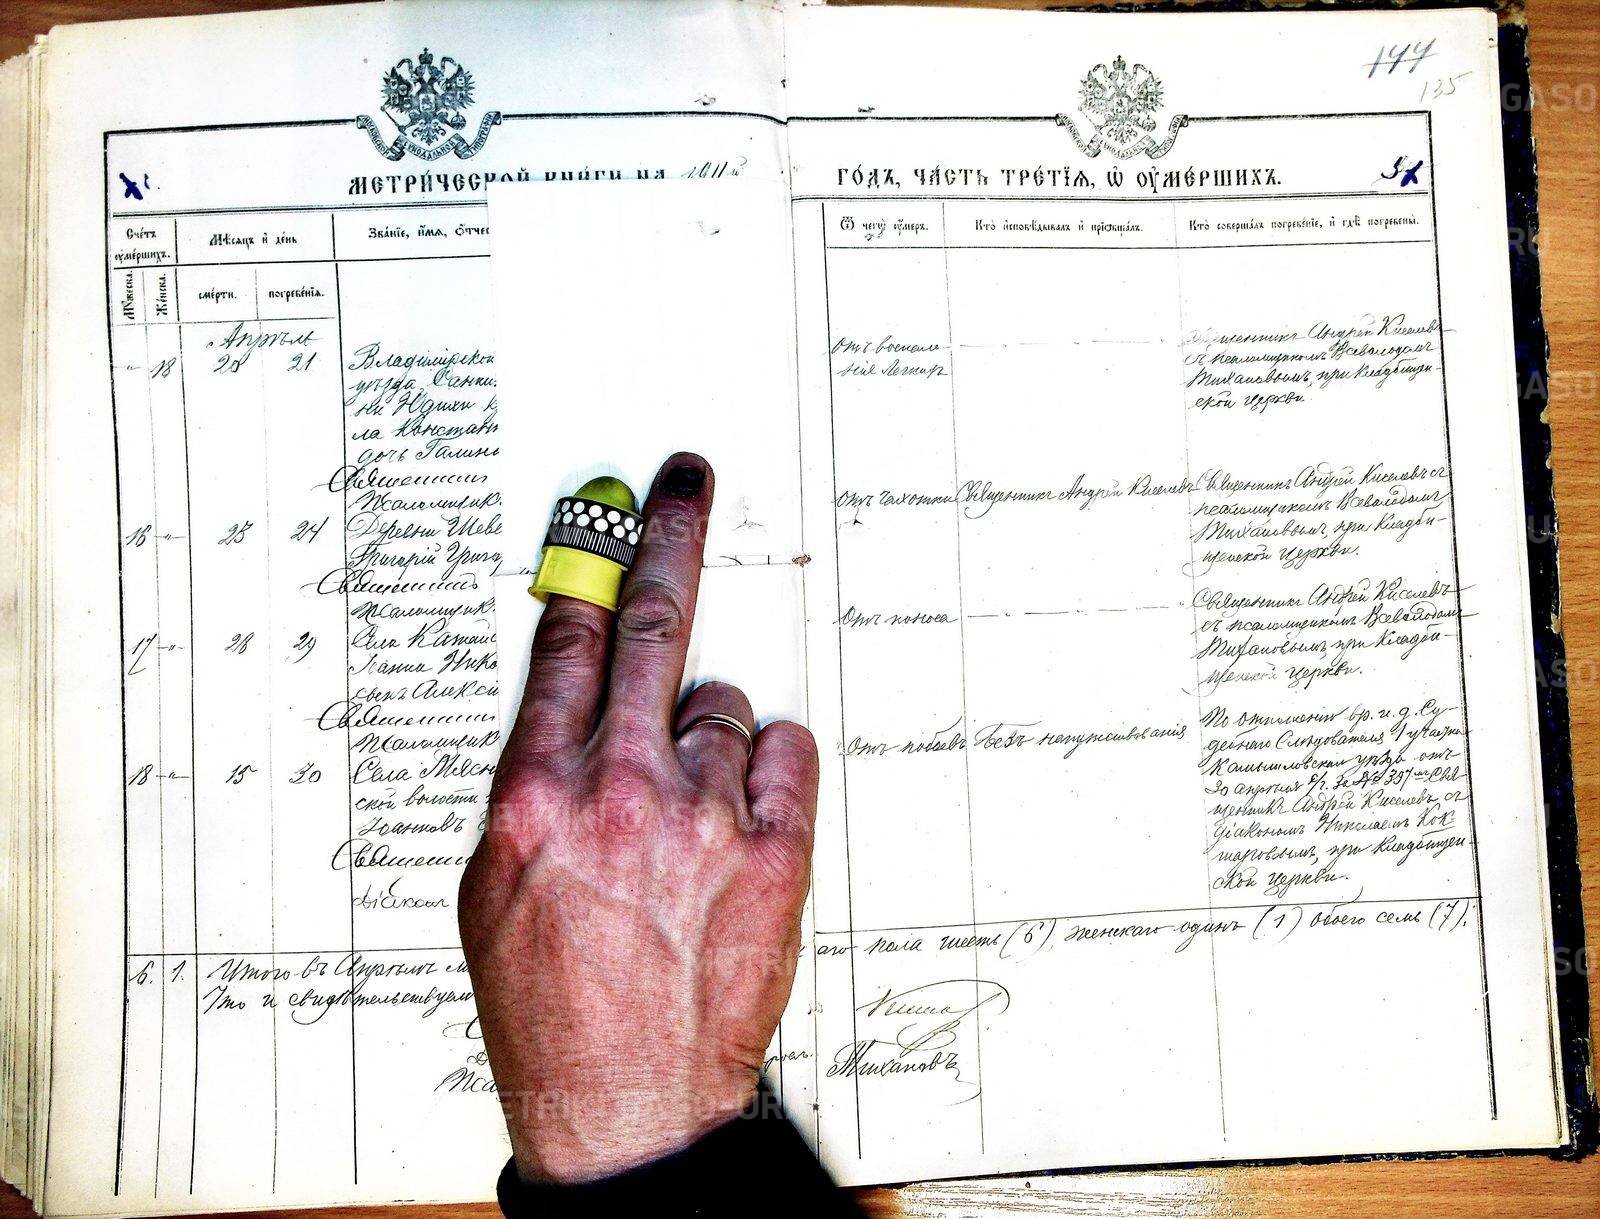 144
135
МЕТРИЧЕСКОЙ КНИГИ НА 1911й
ГОДЪ, ЧАСТЬ ТРЕТІЯ, Ѡ ОУМЕРШИХЪ.
Счетъ оумершихъ.
Мѣсяцъ и день
Званіе, имя, отчес
Мужеска.
Женска.
смерти.
погребенія.
Ѿ чегѡ оумеръ.
Кто исповѣдывалъ и пріобщалъ.
Кто совершалъ погребеніе, и гдѣ погребены.
Апрѣль
18 20 21
Владимірской
уѣзда
ла Констант
дочь Галина
Священникъ
Псаломщик
Отъ воспале
нія легкихъ
Священникъ Андрей Киселевъ
съ псаломщикомъ Всеволодомъ
Тихановымъ, при кладбищен-
ской церкви.
16 23 24
Деревни Шеве
Григорій Григор
Священникъ
Псаломщик
Отъ чахотки
Священникъ Андрей Киселевъ
Священникъ Андрей Киселевъ съ
псаломщикомъ Всеволодомъ
Тихановымъ, при кладби-
щенской церкви.
17 28 29
Села Катайс
Іоанна Нико
сынъ Алексій
Священникъ
Псаломщик
Отъ поноса
Священникъ Андрей Киселевъ
съ псаломщикомъ Всеволодомъ
Тихановымъ, при кладби-
щенской церкви.
18 15 30
Села Мясн
ской волости
Іоанновъ
Священни
Діакон
Отъ побоевъ
Безъ напутствованія
По отношенію вр. и. д. Су-
дебнаго Слѣдователя 1 участка
Камышловскаго уѣзда отъ
30 апрѣля с/г. за № 397 Свя-
щенникъ Андрей Киселевъ съ
діакономъ Николаемъ Кок
шаровымъ, при кладбищен-
ской церкви.
6. 1. Итого въ Апрѣлѣ м
аго пола шесть (6), женскаго одинъ (1) обоего семь (7);
Что и свидѣтельствуем
Пса
Тихановъ
METRIKI.GASO-URAL.RU